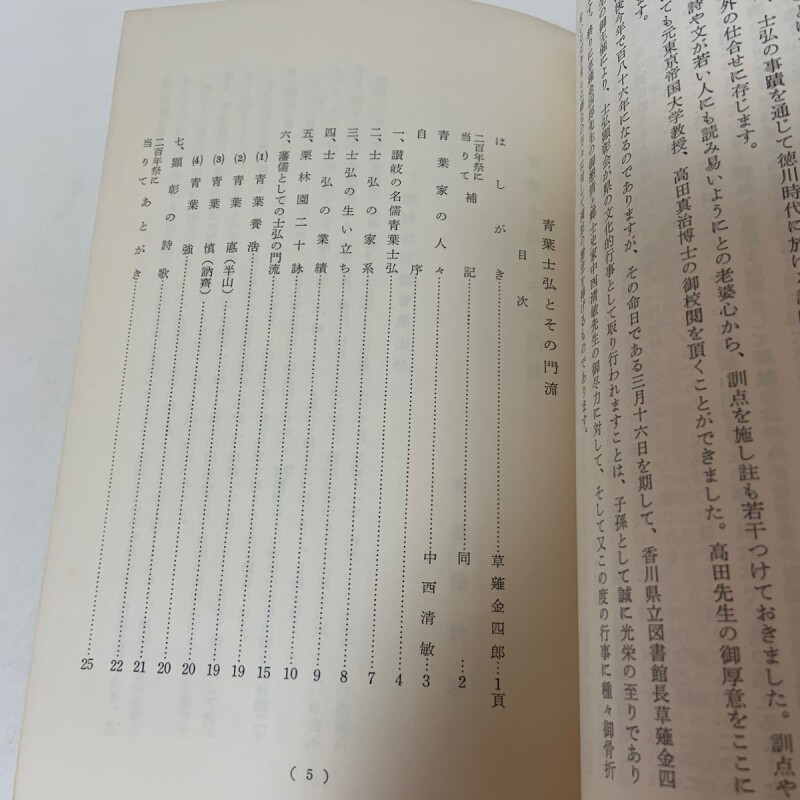 士弘の事蹟を通じて徳川時代に於ける
外の仕合せに存じます。
詩や文が若い人にも読み易いようにとの老婆心から、訓点を施し註も若干つけておきました。訓点や
ても元東京帝国大学教授、高田真治博士の御校閲を頂くことができました。高田先生の御厚意をここに
ます。
使今年で百八十六年になるのでありますが、その命日である三月十六日を期して、香川県立図書館長草薙金四
の御主催により、士弘顕彰会が県の文化的行事として取り行われますことは、子孫として誠に光栄の至りであり
郷土史家中西清敏先生の御尽力に対して、そして又この度の行事に種々御骨折
青葉士弘とその門流
目次
はしがき 草薙金四郎 1頁
二百年祭に当りて 補記 同 2
青葉家の人々 中西清敏 3
自序
一、讃岐の名儒青葉士弘 4
二、士弘の家系 7
三、士弘の生い立ち 8
四、士弘の業績 9
五、栗林園二十詠 10
六、藩儒としての士弘の門流 15
(1) 青葉養浩 19
(2) 青葉悳(半山) 19
(3) 青葉慎(訥齋) 20
(4) 青葉強 20
七、顕彰の詩歌 21
二百年祭に当りて あとがき 22
25
(5)